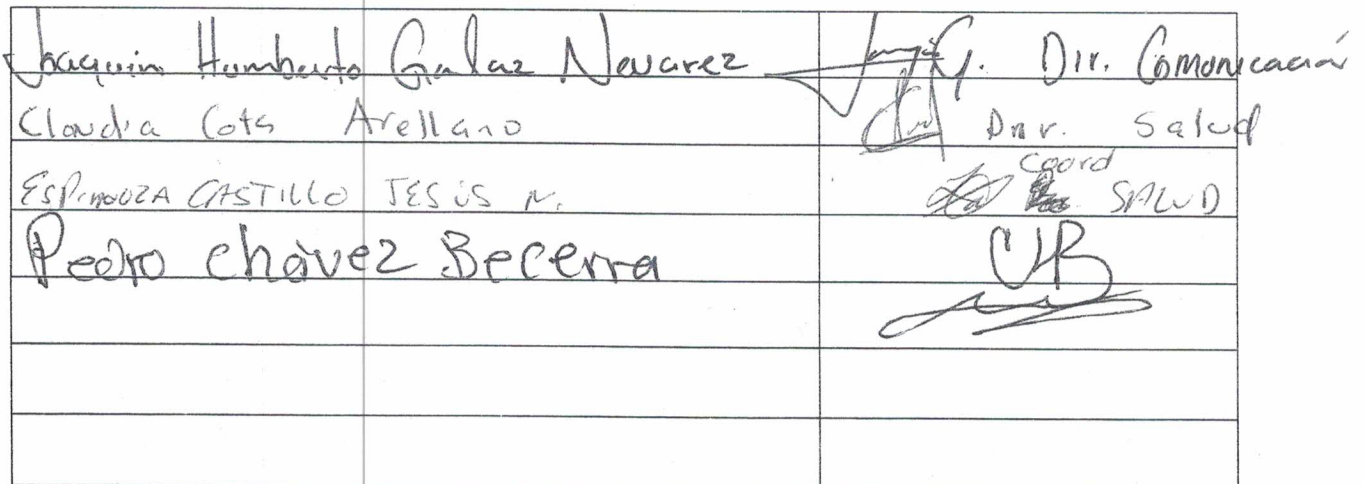 Joaquin Humberto Galaz Nevarez Dir. Comunicación
Claudia Cota Arellano Dir. Salud
ESPINOOZA CASTILLO JESÚS N. Coord SALUD
Pedro Chávez Becerra